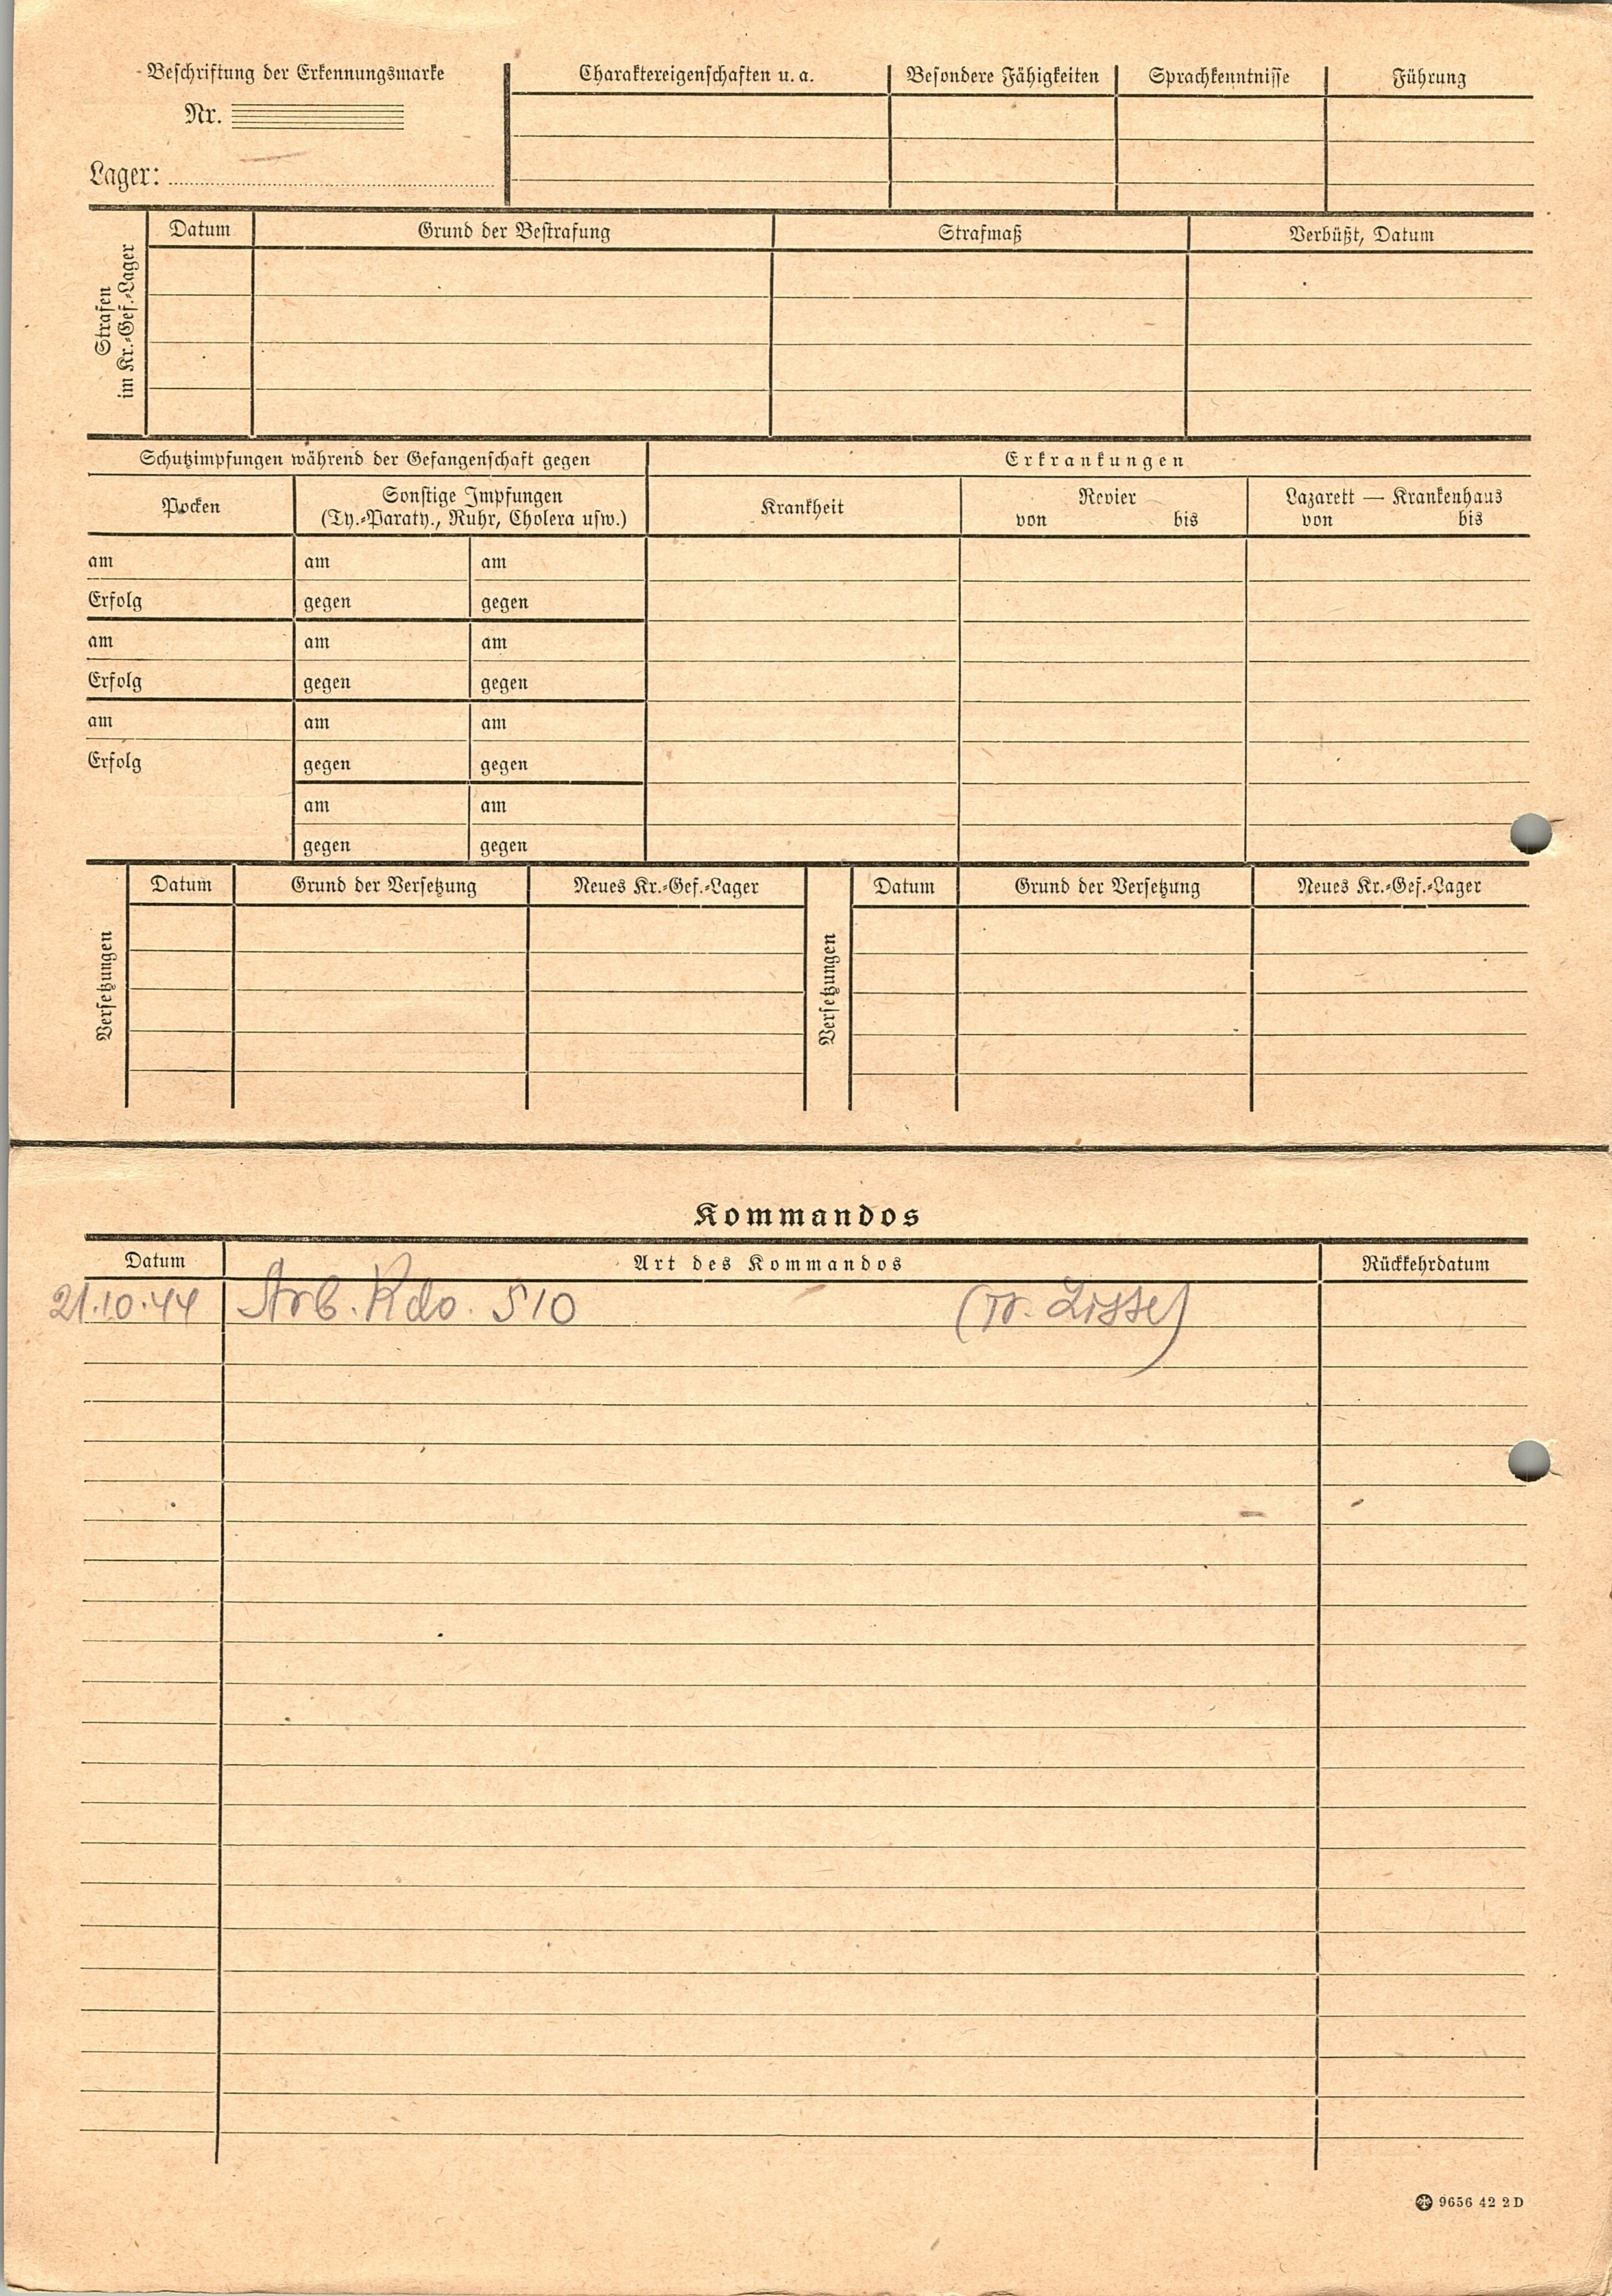 Beschriftung der Erkennungsmarke
Nr.
Lager:
Charaktereigenschaften u. a.
Besondere Fähigkeiten
Sprachkenntnisse
Führung
Strafen
im Kr.-Gef.-Lager
Datum
Grund der Bestrafung
Strafmaß
Verbüßt, Datum
Schutzimpfungen während der Gefangenschaft gegen
Erkrankungen
Pocken
Sonstige Impfungen
(Ty.-Paraty., Ruhr, Cholera usw.)
Krankheit
Revier
von bis
Lazarett — Krankenhaus
von bis
am am am
Erfolg gegen gegen
am am am
Erfolg gegen gegen
am am am
Erfolg gegen gegen
am am
gegen gegen
Versetzungen
Datum
Grund der Versetzung
Neues Kr.-Gef.-Lager
Versetzungen
Datum
Grund der Versetzung
Neues Kr.-Gef.-Lager
Kommandos
Datum
Art des Kommandos
Rückkehrdatum
21.10.44 Arb. Kdo. 510
9656 42 2 D